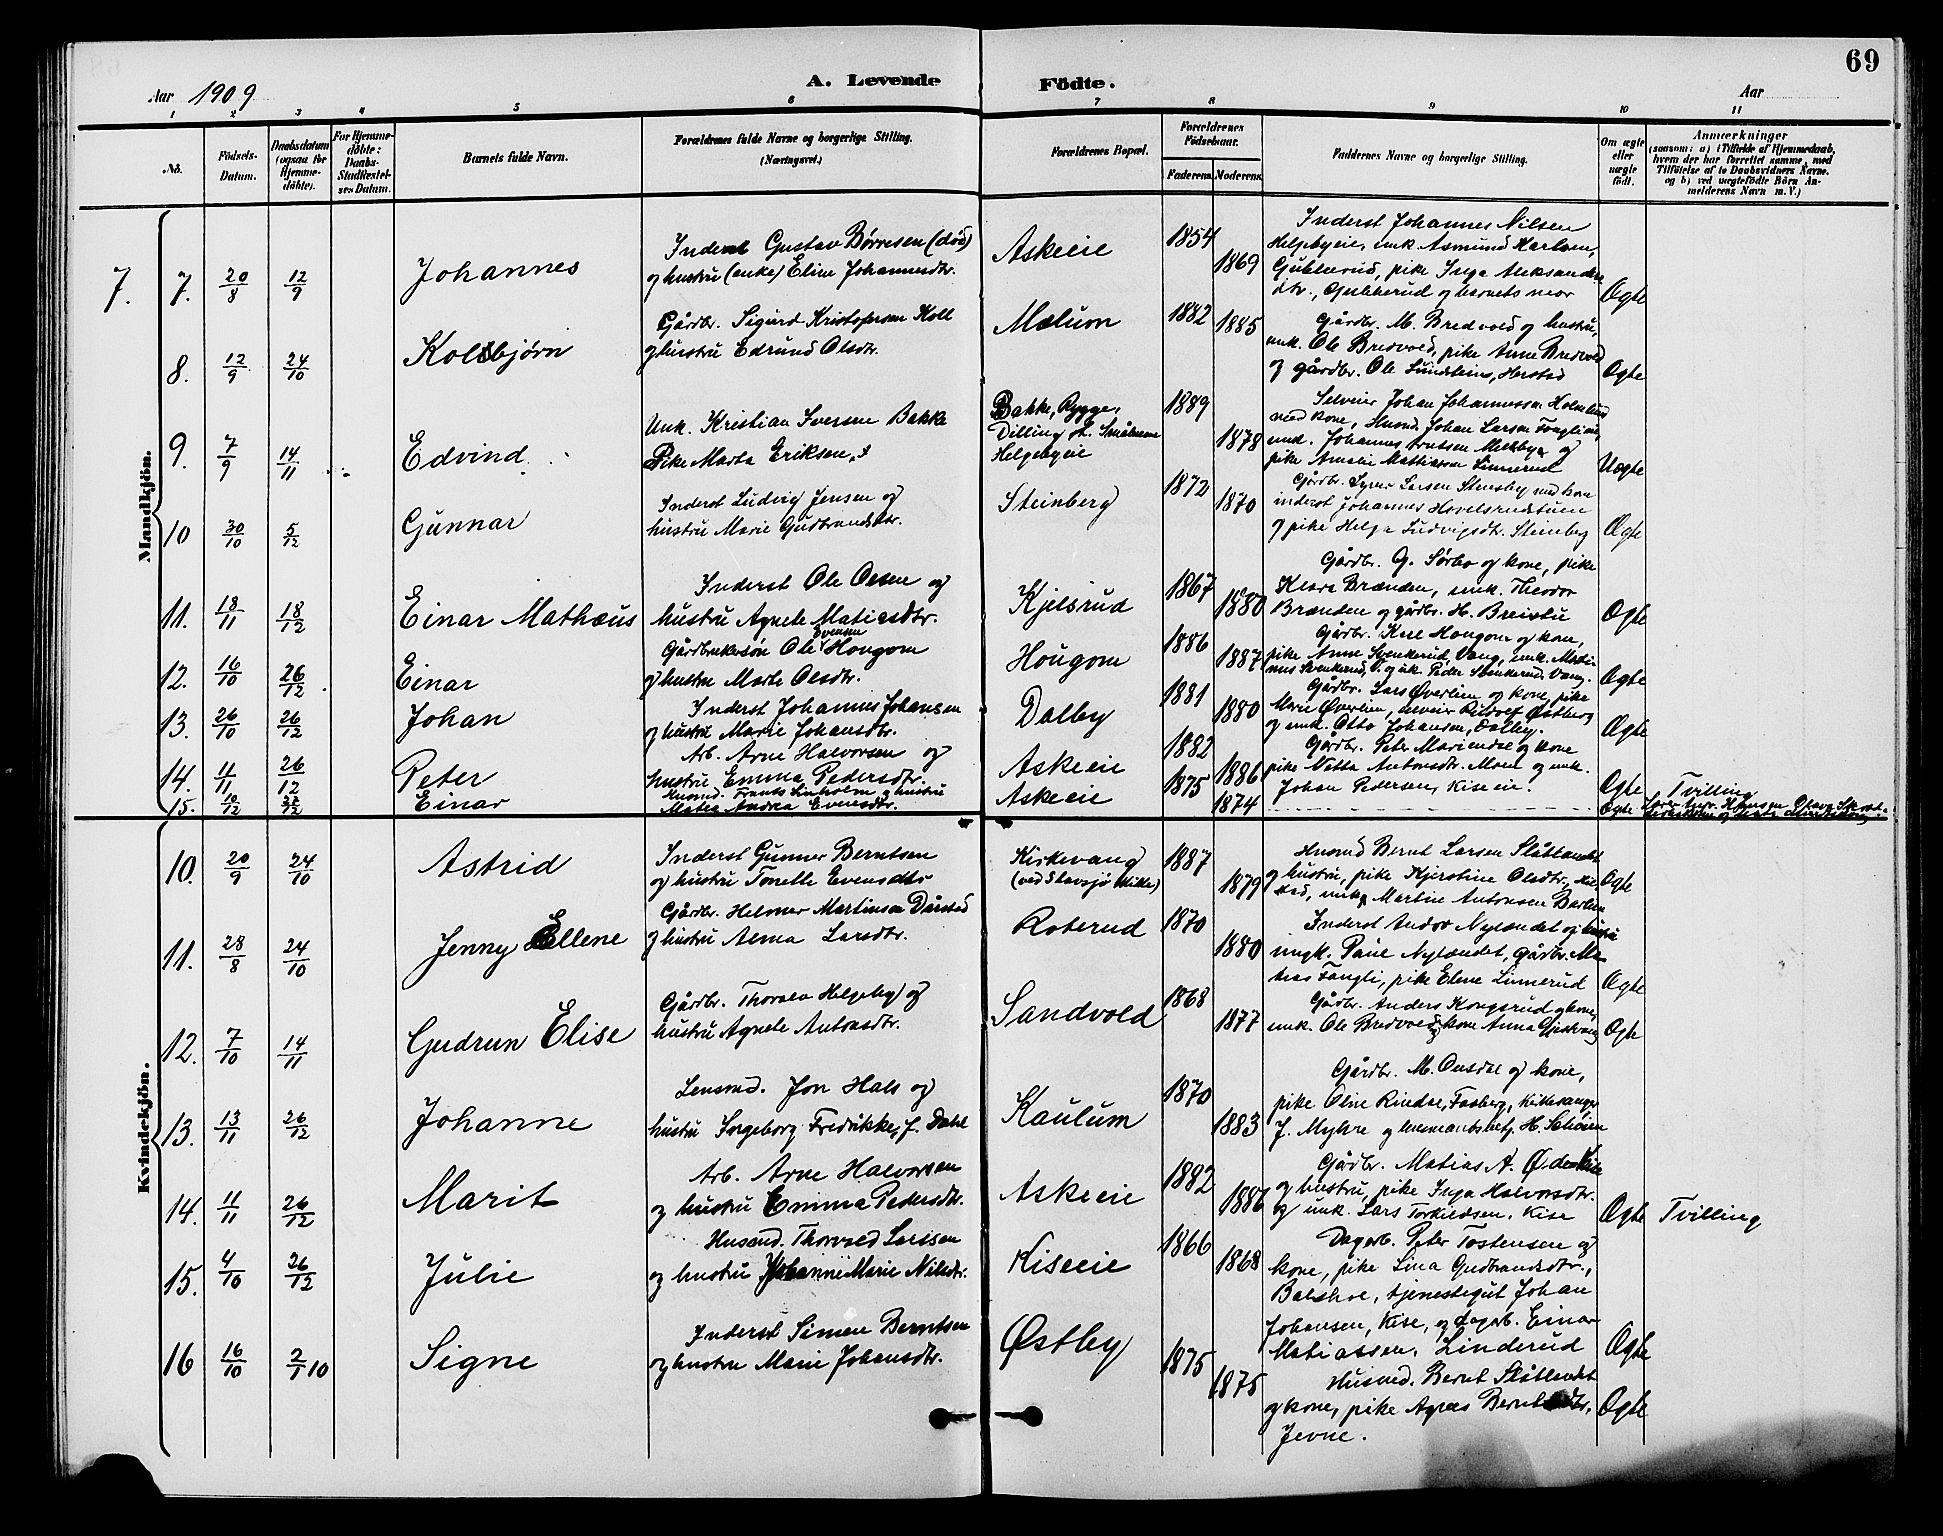 69
Aar 1909
A. Levende Födte.
Aar
1 2 3 4 5 6 7 8 9 10 11
No.
Födsels-Datum.
Daabsdatum (ogsaa for Hjemmedöbte).
For Hjemmedöbte: Daabs-Stadfæstelses Datum.
Barnets fulde Navn.
Forældrenes fulde Navne og borgerlige Stilling. (Næringsvei.)
Forældrenes Bopæl.
Forældrenes Födselsaar.
Faderens. Moderens.
Faddernes Navne og borgerlige Stilling.
Om ægte eller uægte født.
Anmærkninger
(saasom: a) i Tilfælde af Hjemmedaab, hvem der har forrettet samme, med Tilføielse af to Daabsvidners Navne. og b) ved uægtefødte Börn Anmelderens Navn m. V.)
Mandkjön.
7. 7. 20/8 12/9 Johannes
Inderst Gustav Børresen (død)
og hustru (enke) Eline Johannesdtr.
Askeeie 1854 1869
Inderst Johannes Nilsen
Helgebyeie, umk. Asmund Karlsen,
pike Inga Aleksanders
dtr., og barnets mor
Ægte
8. 12/9 24/10 Kolbjørn
Gårdbr. Sigurd Kristofersen Koll
og hustru Edrund Olsdtr.
Mælum 1882 1885
Gårdbr. M. Bredvold og hustru,
umk. Ole Bredvold, pike Anne Bredvold
og gårdbr. Ole Sundheim, Herstad
Ægte
9. 7/9 14/11 Edvind
Umk. Kristian Iversen Bakke
Pike Marta Eriksen
Bakke, Rygge,
Dilling st. Smålenene
Helgebyeie
1889 1878
Selveier Johan Johannessen
med kone, Husmd. Johan Larsen
umk. Johannes Knutsen Melby og
pike Amalie Mattiassen Linnerud
Uægte
10 30/10 5/12 Gunnar
Inderst Ludvig Jensen og
hustru Marie Gudbrandsdtr.
Steinberg 1872 1870
Gårdbr. Syver Larsen Stensby med kone
inderst Johannes Hovelsrudstuen
og pike Helga Ludvigsdtr. Steinberg
Ægte
11. 18/11 18/12 Einar Mathæus
Inderst Ole Olsen og
hustru Agnete Matiasdtr.
Kjelsrud 1867 1880
Gårdbr. G. Sørbo og kone, pike
Klara Brænden, umk. Theodor
Brænden og gårdbr. H. Breistu
Ægte
12. 16/10 26/12 Einar
Gårdbrukersøn Ole Evensen Hougom
og hustru Marte Olsdtr.
Hougom 1886 1887
Gårdbr. Karl Hougom og kone,
pike Anne Svenkerud, Vang, umk. Martinus Svenkerud, V. og uk. Peder Svenkerud, Vang.
Ægte
13. 26/10 26/12 Johan
Inderst Johannes Johansen
og hustru Marie Johansdtr.
Dalby 1881 1880
Gårdbr. Lars Øverlien og kone, pike
Marie Øverlien, selveier Rudolf Østberg
og umk. Otto Johansen, Dalby.
Ægte
14. 11/11 26/12 Peter
Arb. Arne Halvorsen og
hustru Emma Pedersdtr.
Askeeie 1882 1886
Gårdbr. Peter Mariendal og kone
pike Netta Antonsdtr. Moen og umk.
Johan Pedersen, Kiseeie.
Ægte Tvilling
15. 10/12 Einar
Husmd. Frants Linholm og hustru
Matea Andrea Evensdtr.
Askeeie 1875 1874
Ægte
Kvindekjön.
10. 20/9 24/10 Astrid
Inderst Gunner Berntsen
og hustru Tonette Evensdtr
Kirkevang
(ved Stavsjø kirke)
1887 1879
Husmd Bernt Larsen Slåtlandet
og hustru, pike Kjerstine Olsdtr,
umk. Martin Antonsen
Ægte
11. 28/8 24/10 Jenny Ellene
Gårdbr. Helmer Martinsen Dørstad
og hustru Alma Larsdtr.
Roterud 1870 1880
Inderst Andor Nylændet og hustru
ungk. Paul Nylændet, gårdbr. Mattias Fangli, pike Elene Linnerud
Ægte
12. 7/10 14/11 Gudrun Elise
Gårdbr. Thorvald Helgeby og
hustru Agnete Antonsdtr.
Sandvold 1868 1877
Gårdbr. Anders Kongsrud og kone,
umk. Ole Bredvold, kone Anna
Ægte
13. 13/11 26/12 Johanne
Lensmd. Jon Hals og
hustru Ingeborg Fredrikke, f. Dahl
Kaulum 1870 1883
Gårdbr. M. Onsdal og kone,
pike Oline Rindal, Faaberg, kirkesanger
J. Myhre og lensmandsbetj. H. Schøien
Ægte
14. 11/11 26/12 Marit
Arb. Arne Halvorsen
og hustru Emma Pedersdtr.
Askeeie 1882 1886
Gårdbr. Matias A. Ødeskise
og hustru, pike Inga Halvorsdtr.
og umk. Lars Torkildsen, Kise
Ægte Tvilling
15. 4/10 26/12 Julie
Husmd. Thorvald Larsen
og hustru Johanne Marie Nilsdtr.
Kiseeie 1866 1868
Dagarb. Peter Tostensen og
kone, pike Lina Gudbrandsdtr.,
Balshol, tjenestegut Johan
Johansen, Kise, og dagarb. Einar
Matiassen, Linderud
Ægte
16 16/10 2/1 10 Signe
Inderst Simen Berntsen
og hustru Marie Johansdtr.
Østby 1875 1875
Husmd. Bernt Slåtlandet
og kone, pike Agnes Berntsdtr.,
Jevne.
Ægte